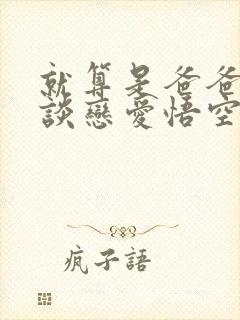 就算是爸爸
談戀愛悟空
疯子語